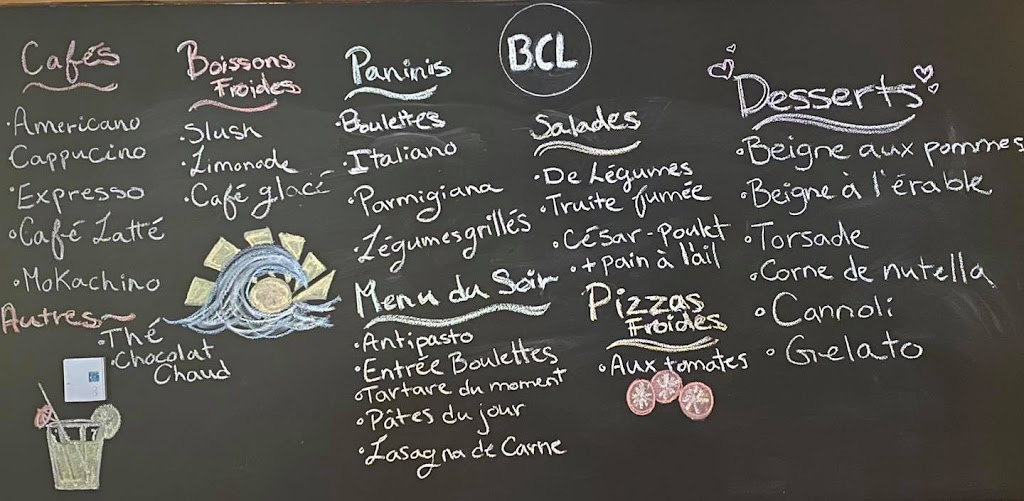 Cafés
·Americano
Cappucino
·Expresso
·Café Latté
·Mokachino
Autres~
·Thé
·Chocolat
Chaud
Boissons
Froides
·Slush
·Limonade
·Café glacé
Paninis
·Boulettes
·Italiano
·Parmigiana
·Légumes grillés
Menu du Soir
·Antipasto
·Entrée Boulettes
·Tartare du moment
·Pâtes du jour
·Lasagna de Carne
BCL
Salades
·De Légumes
·Truite fumée
·César-poulet
·+ pain à l'ail
Pizzas
Froides
·Aux tomates
Desserts
·Beigne aux pommes
·Beigne à l'érable
·Torsade
·Corne de nutella
·Cannoli
·Gelato